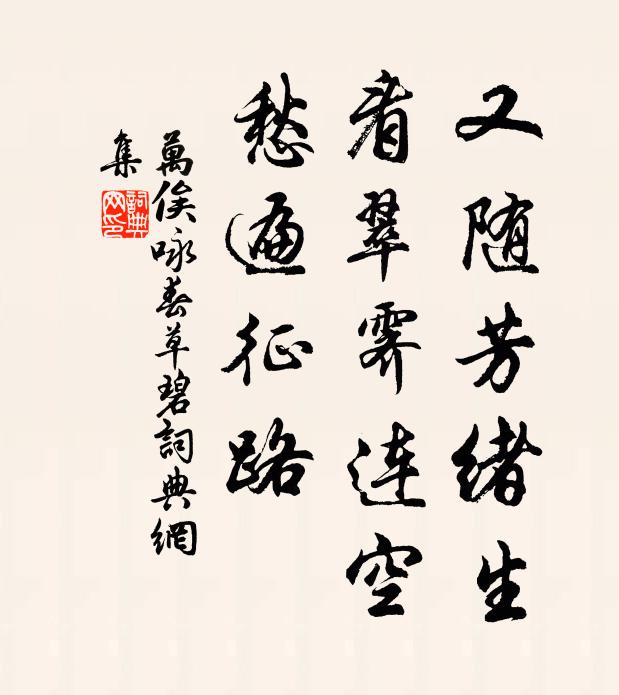 又随芳绪生
看翠霁连空
愁遍征路
萬俟咏春草碧詞典網
集
詞典
网印